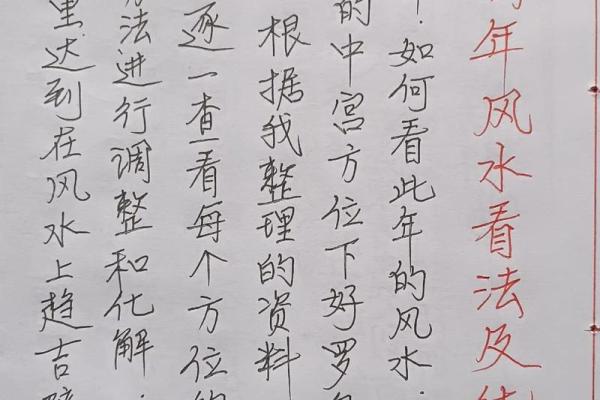 年风水看法及
！如何看此年的风水：
的中宫方位下好罗
根据我整理的资料
逐一查看每个方位的
方法进行调整和化解：
里达到在风水上趋吉